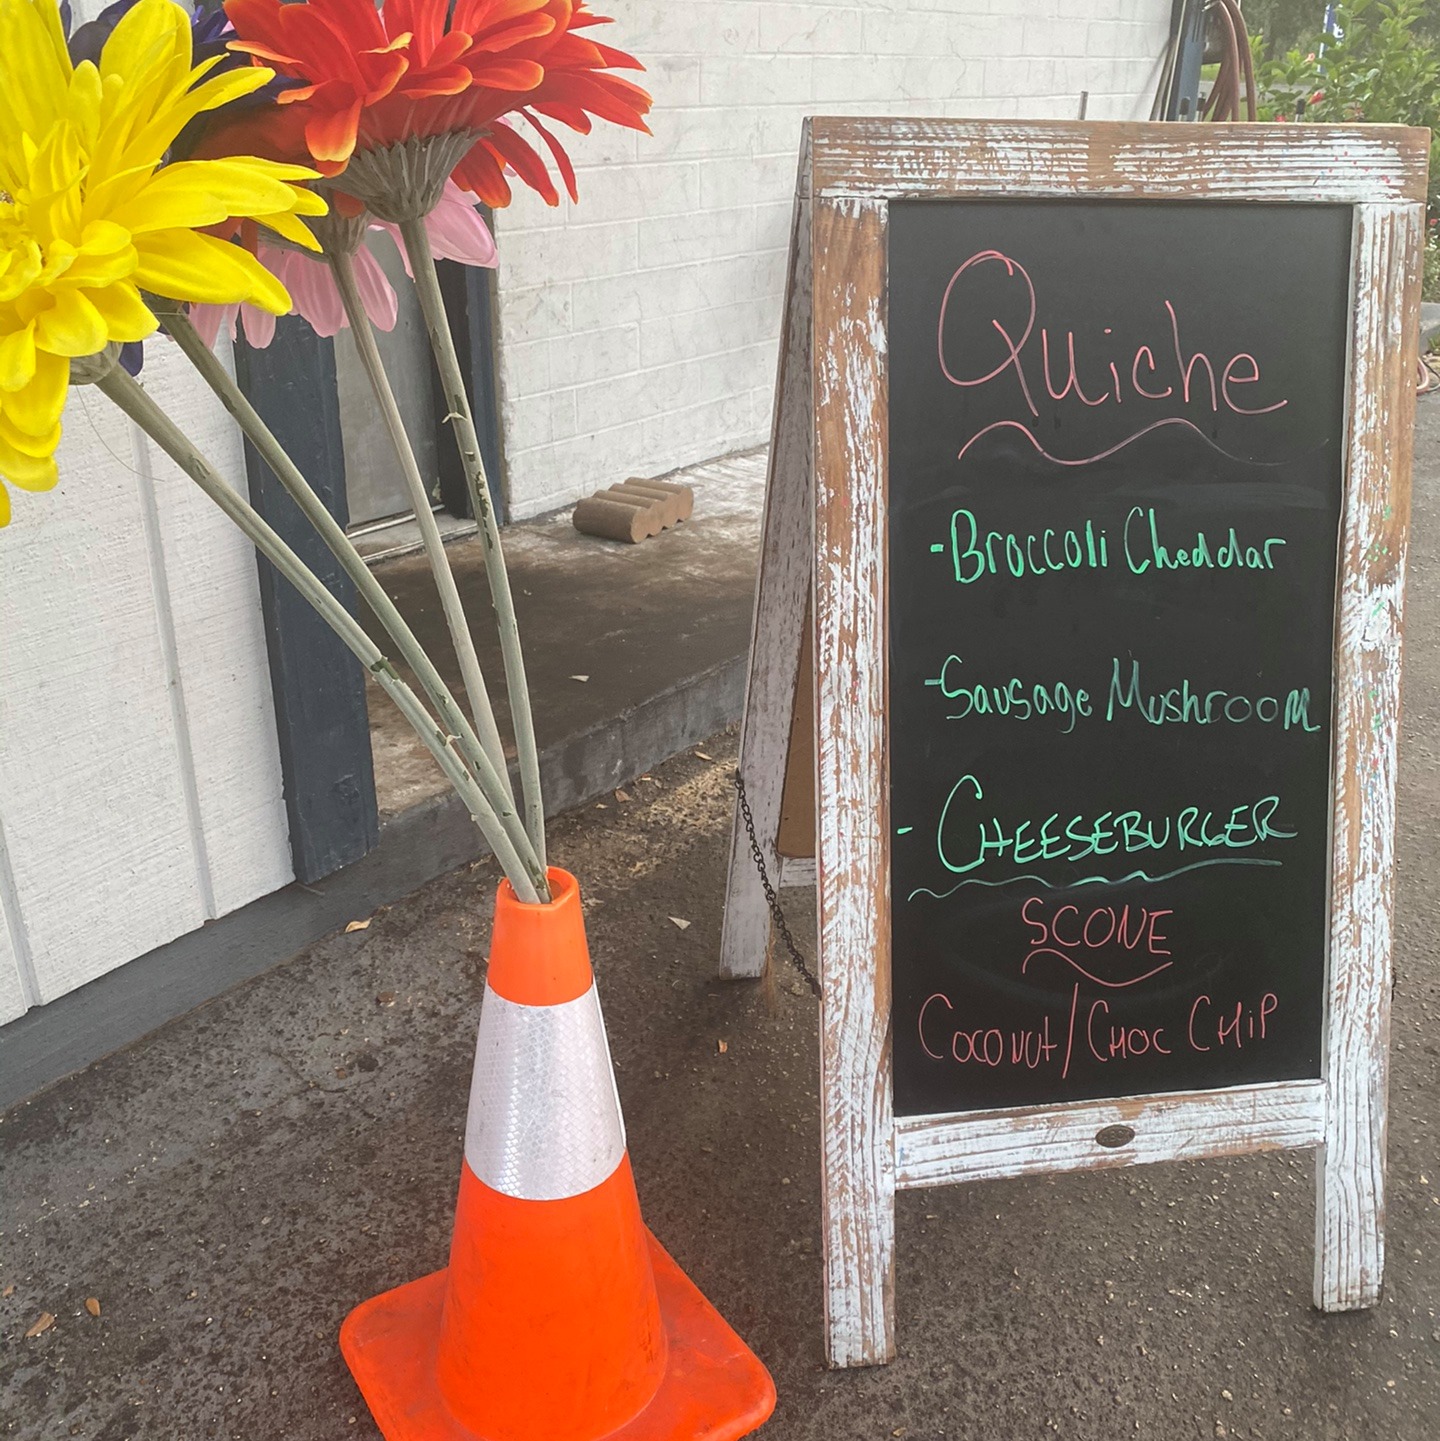 Quiche
-Broccoli Cheddar
-Sausage Mushroom
- CHEESEBURGER
SCONE
COCONUT/CHOC CHiP